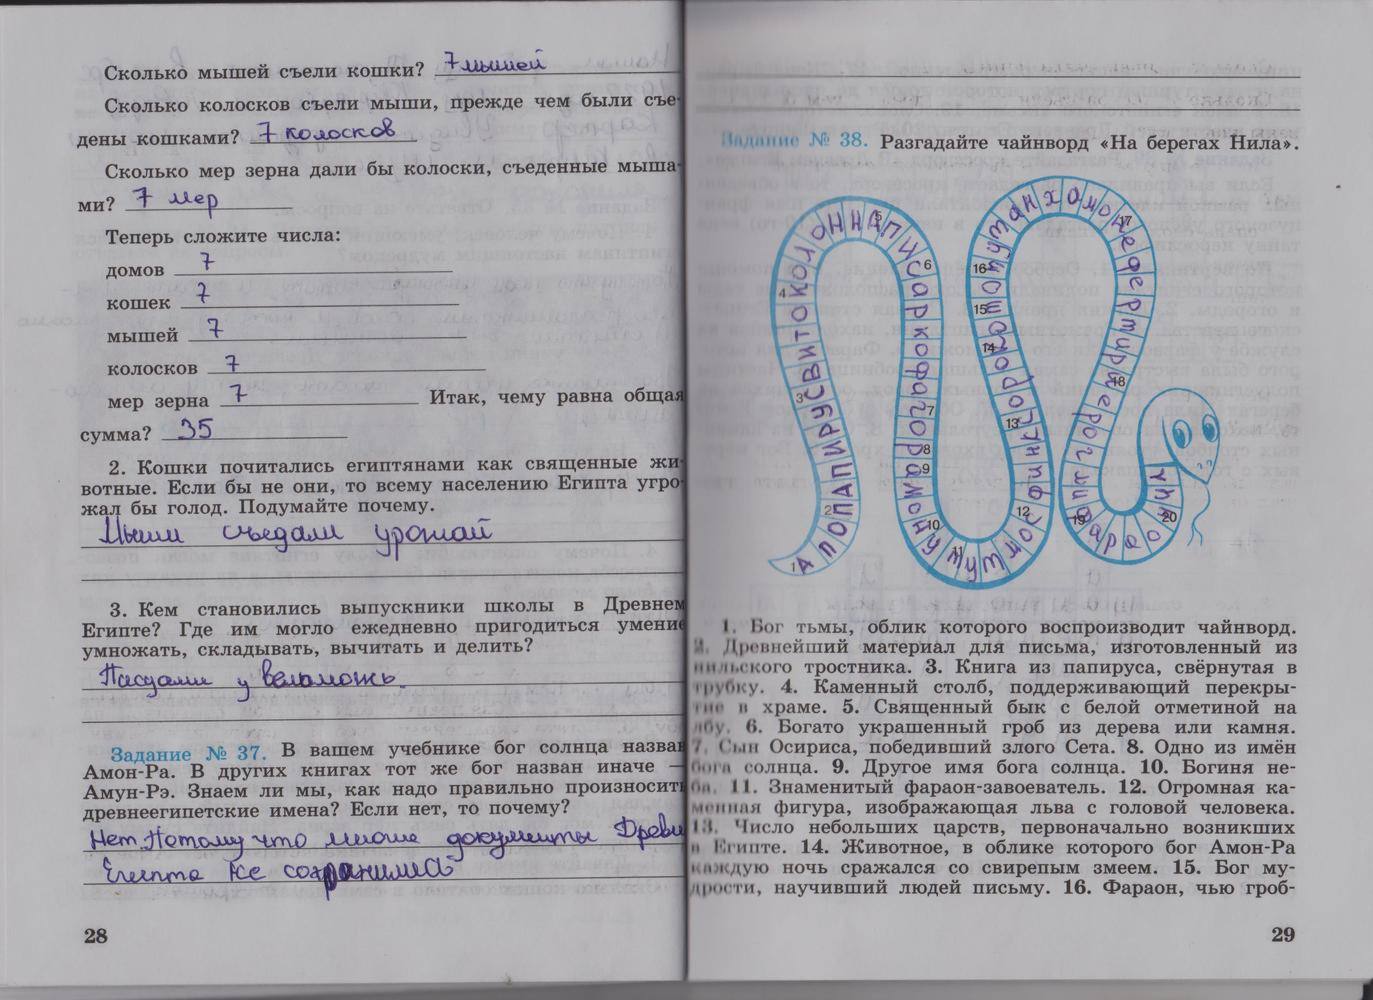 Сколько мышей съели кошки? 7 мышей
Сколько колосков съели мыши, прежде чем были съе-
дены кошками? 7 колосков
Сколько мер зерна дали бы колоски, съеденные мыша-
ми? 7 мер
Теперь сложите числа:
домов 7
кошек 7
мышей 7
колосков 7
мер зерна 7 Итак, чему равна общая
сумма? 35
2. Кошки почитались египтянами как священные жи-
вотные. Если бы не они, то всему населению Египта угро-
жал бы голод. Подумайте почему.
Мыши съедали урожай
3. Кем становились выпускники школы в Древнем
Египте? Где им могло ежедневно пригодиться умение
умножать, складывать, вычитать и делить?
Писцами у вельможь.
Задание № 37. В вашем учебнике бог солнца назван
Амон-Ра. В других книгах тот же бог назван иначе —
Амун-Рэ. Знаем ли мы, как надо правильно произносить
древнеегипетские имена? Если нет, то почему?
Нет. Потому что многие документы Древн
Египта не сохранились
28
Задание № 38. Разгадайте чайнворд «На берегах Нила».
1 2 3 4 5 6 7 8 9 10 11 12 13 14 15 16 17 18 19 20
1. Бог тьмы, облик которого воспроизводит чайнворд.
2. Древнейший материал для письма, изготовленный из
нильского тростника. 3. Книга из папируса, свёрнутая в
трубку. 4. Каменный столб, поддерживающий перекры-
тие в храме. 5. Священный бык с белой отметиной на
лбу. 6. Богато украшенный гроб из дерева или камня.
7. Сын Осириса, победивший злого Сета. 8. Одно из имён
бога солнца. 9. Другое имя бога солнца. 10. Богиня не-
ба. 11. Знаменитый фараон-завоеватель. 12. Огромная ка-
менная фигура, изображающая льва с головой человека.
13. Число небольших царств, первоначально возникших
в Египте. 14. Животное, в облике которого бог Амон-Ра
каждую ночь сражался со свирепым змеем. 15. Бог му-
дрости, научивший людей письму. 16. Фараон, чью гроб-
29